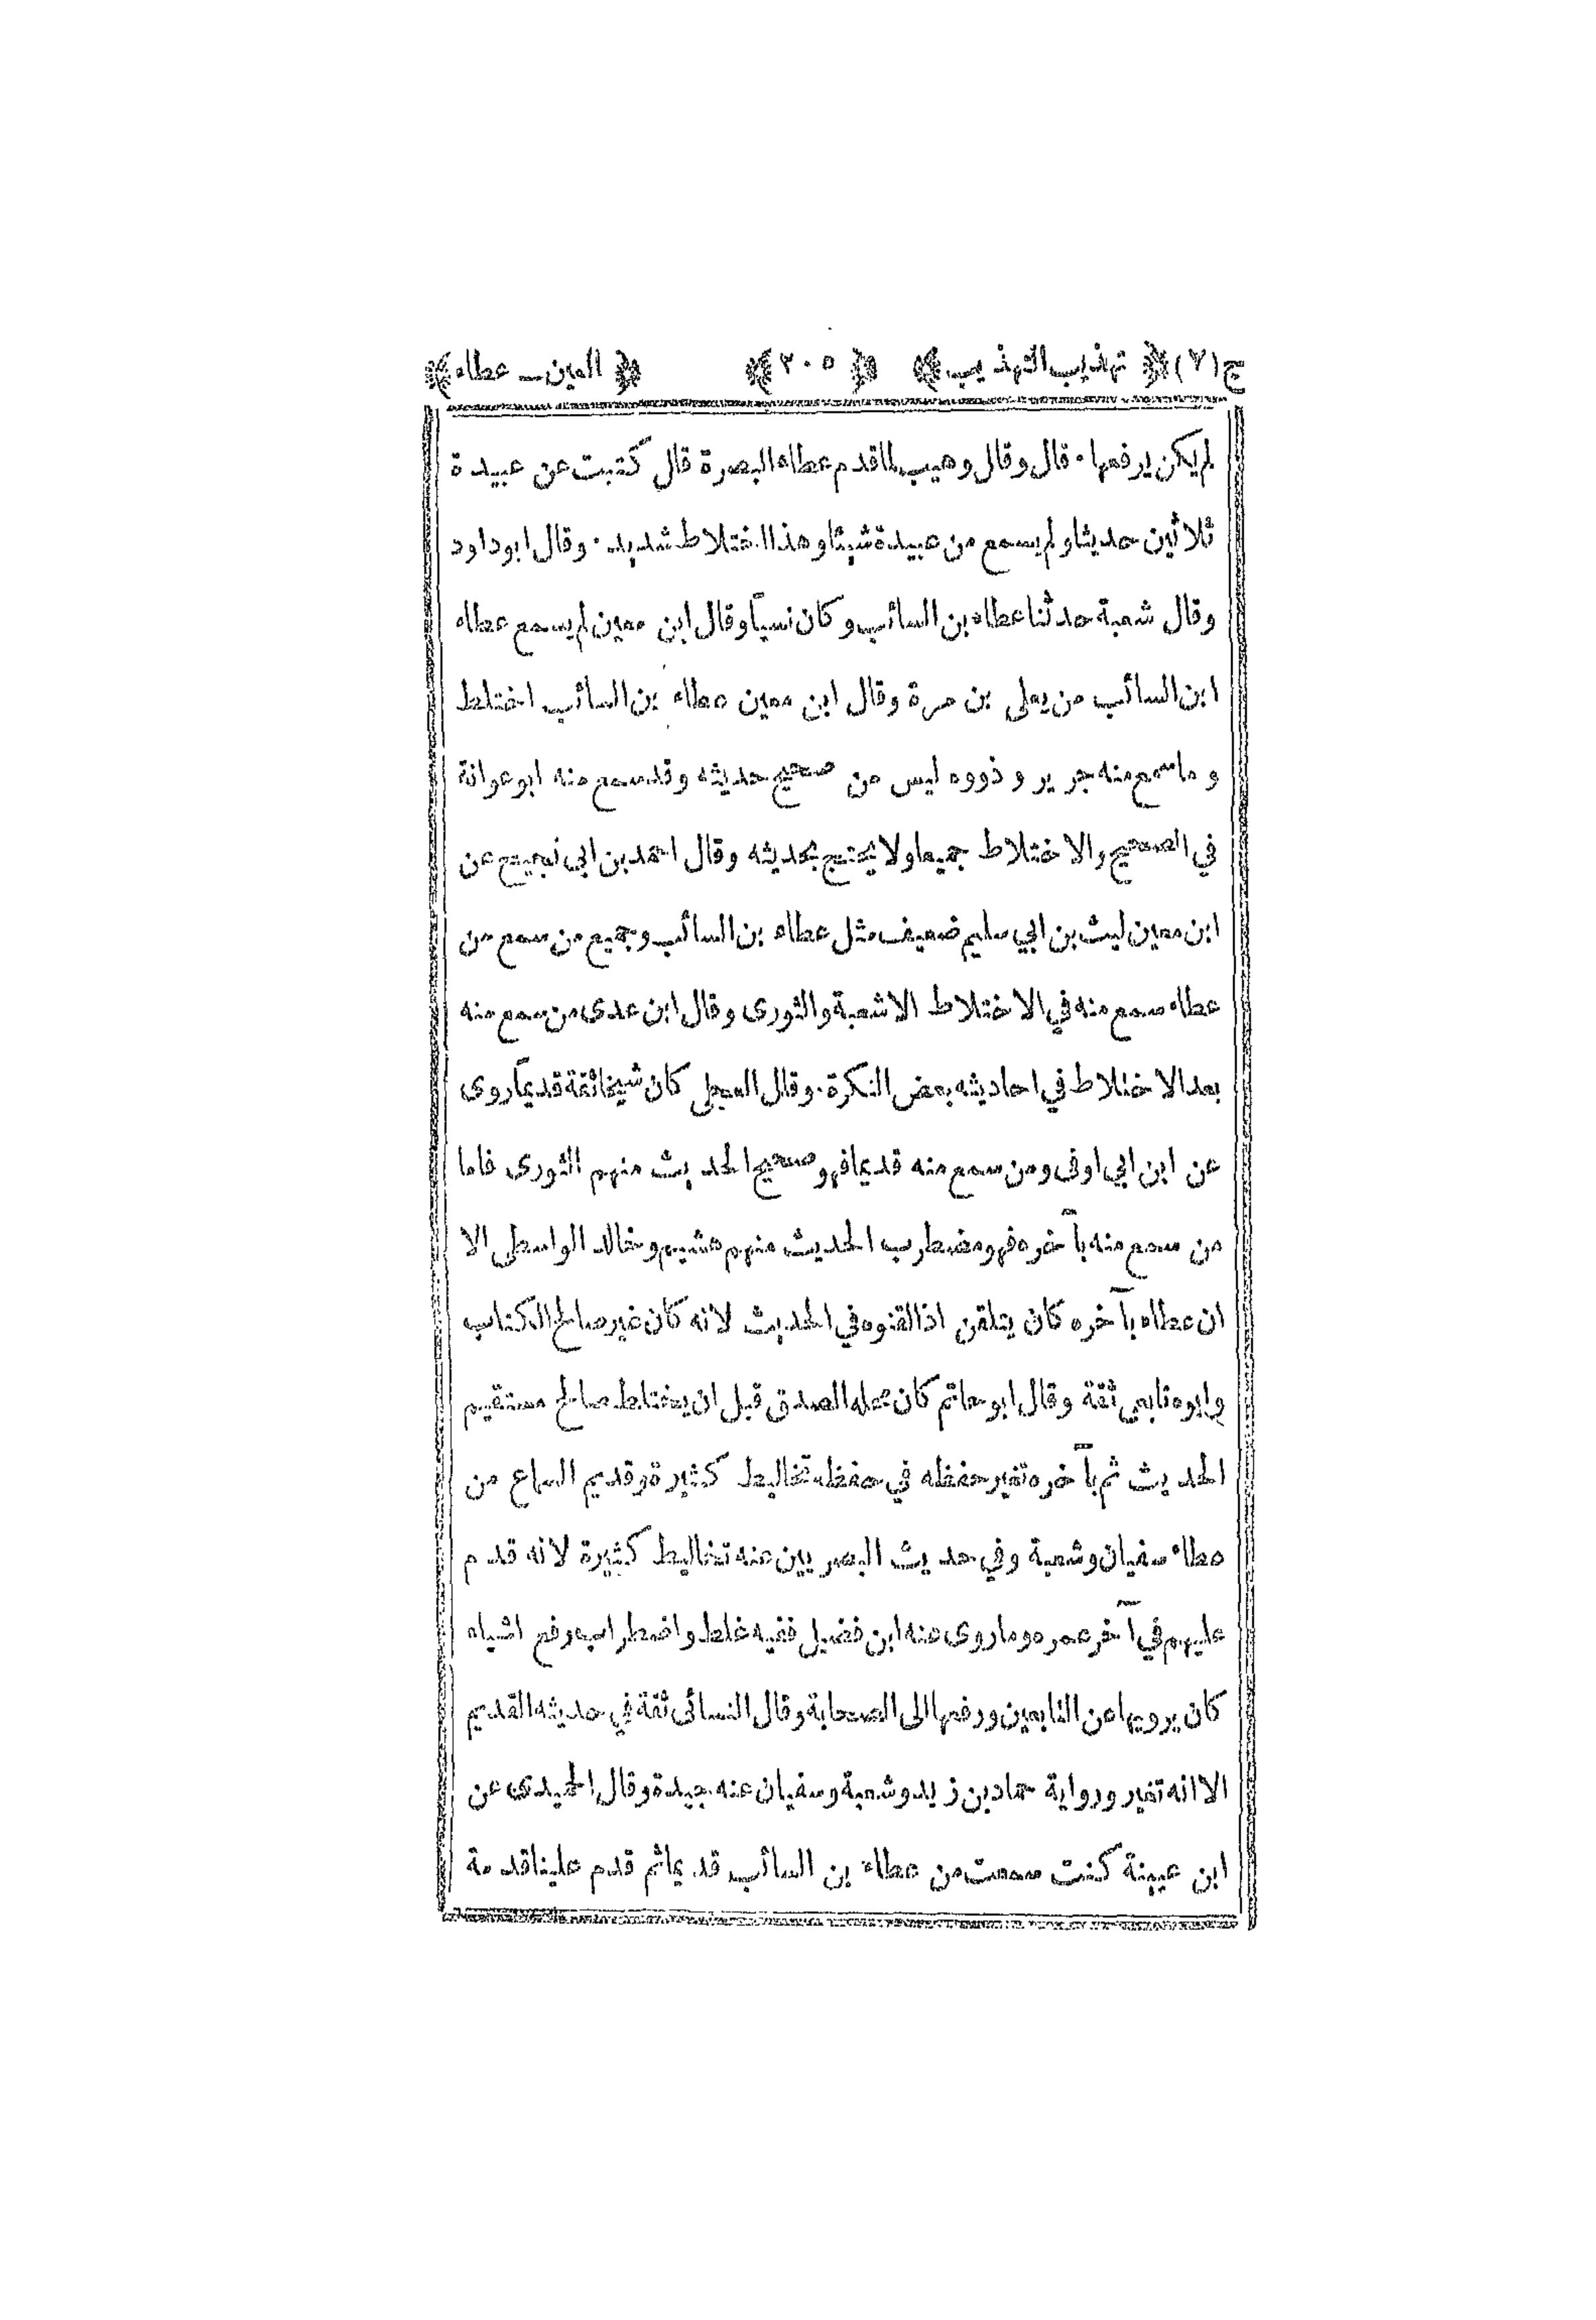 ج(٧) ﴿ تهذيب التهذيب ﴾ ﴿ ٢٠٥ ﴾ ﴿ العين ـ عطاء ﴾
لم يكن يرفعها ٠ قال وقال وهيب لما قدم عطاء البصرة قال كتبت عن عبيدة
ثلاثين حديثا ولم يسمع من عبيدة شيئا وهذا اختلاط شديد ٠ وقال ابو داود
وقال شعبة حدثنا عطاء بن السائب وكان نسيّا وقال ابن معين لم يسمع عطاء
ابن السائب من يعلى بن مرة وقال ابن معين عطاء بن السائب اختلط
و ما سمع منه جرير و ذووه ليس من صحيح حديثه وقد سمع منه ابو عوانة
في الصحيح والاختلاط جميعا ولا يحتج بحديثه وقال احمد بن ابى نجيح عن
ابن معين ليث بن ابي سليم ضعيف مثل عطاء بن السائب وجميع من سمع من
عطاء سمع منه في الاختلاط الا شعبة والثورى وقال ابن عدى من سمع منه
بعد الاختلاط في احاديثه بعض النكرة ٠ وقال العجلي كان شيخا ثقة قديمًا روى
عن ابن ابي اوفى ومن سمع منه قديما فهو صحيح الحديث منهم الثورى فاما
من سمع منه بآخره فهو مضطرب الحديث منهم هشيم وخالد الواسطى الا
ان عطاء بآخره كان يتلقن اذا لقنوه في الحديث لانه كان غير صالح الكتاب
وابوه تابعي ثقة وقال ابو حاتم كان محله الصدق قبل ان يختلط صالح مستقيم
الحديث ثم بآخره تغير حفظه في حفظه تخاليط كثيرة وقديم السماع من
عطاء سفيان وشعبة وفي حديث البصريين عنه تخاليط كثيرة لانه قدم
عليهم في آخر عمره وما روى عنه ابن فضيل ففيه غلط واضطراب رفع اشياء
كان يرويها عن التابعين ورفعها الى الصحابة وقال النسائى ثقة في حديثه القديم
الا انه تغير ورواية حماد بن زيد وشعبة وسفيان عنه جيدة وقال الحميدى عن
ابن عيينة كنت سمعت من عطاء بن السائب قديما ثم قدم علينا قدمة